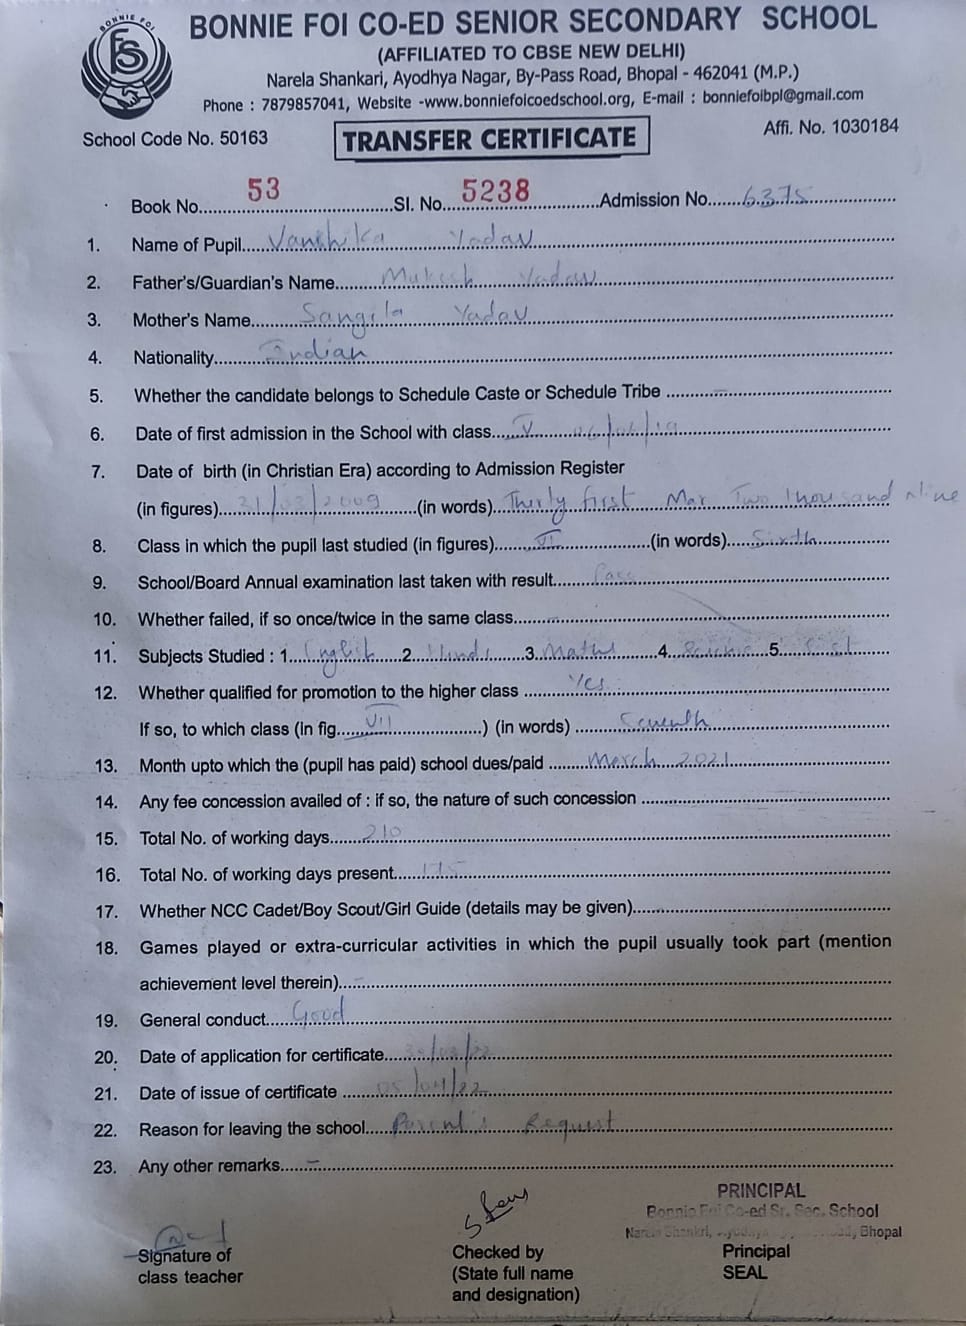 BONNIE FOI
BONNIE FOI CO-ED SENIOR SECONDARY SCHOOL
(AFFILIATED TO CBSE NEW DELHI)
Narela Shankari, Ayodhya Nagar, By-Pass Road, Bhopal - 462041 (M.P.)
Phone : 7879857041, Website -www.bonniefoicoedschool.org, E-mail : bonniefoibpl@gmail.com
School Code No. 50163 TRANSFER CERTIFICATE Affi. No. 1030184
Book No. 53 Sl. No. 5238 Admission No. 6375
1. Name of Pupil Vanshika Yadav
2. Father's/Guardian's Name Mukesh Yadav
3. Mother's Name Sangita Yadav
4. Nationality Indian
5. Whether the candidate belongs to Schedule Caste or Schedule Tribe –
6. Date of first admission in the School with class V /19
7. Date of birth (in Christian Era) according to Admission Register
(in figures) 31/03/2009 (in words) Thirty first Mar Two thousand nine
8. Class in which the pupil last studied (in figures) VI (in words) Sixth
9. School/Board Annual examination last taken with result Pass
10. Whether failed, if so once/twice in the same class
11. Subjects Studied : 1 English 2 Hindi 3 Maths 4 Science 5 S.St
12. Whether qualified for promotion to the higher class Yes
If so, to which class (in fig. VII ) (in words) Seventh
13. Month upto which the (pupil has paid) school dues/paid March 2021
14. Any fee concession availed of : if so, the nature of such concession
15. Total No. of working days 210
16. Total No. of working days present 175
17. Whether NCC Cadet/Boy Scout/Girl Guide (details may be given)
18. Games played or extra-curricular activities in which the pupil usually took part (mention
achievement level therein) –
19. General conduct Good
20. Date of application for certificate /22
21. Date of issue of certificate 05/04/22
22. Reason for leaving the school Parent's Request
23. Any other remarks –
PRINCIPAL
Bonnie Foi Co-ed Sr. Sec. School
Bhopal
Signature of
class teacher
Checked by
(State full name
and designation)
Principal
SEAL